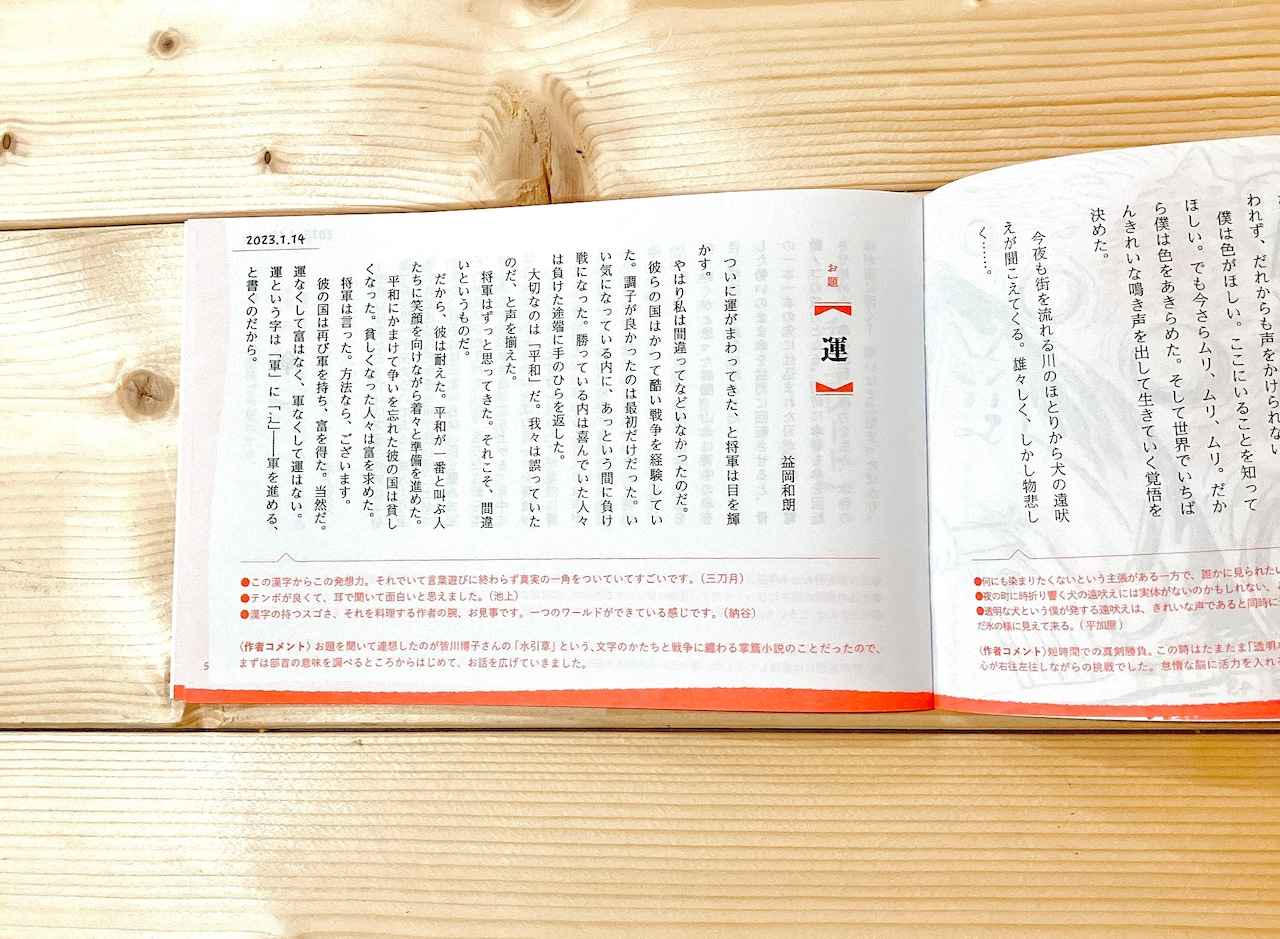 われず、だれからも声をかけられない
僕は色がほしい。ここにいることを知って
ほしい。でも今さらムリ、ムリ、ムリ。だか
ら僕は色をあきらめた。そして世界でいちば
んきれいな鳴き声を出して生きていく覚悟を
決めた。
今夜も街を流れる川のほとりから犬の遠吠
えが聞こえてくる。雄々しく、しかし物悲し
く……。
●何にも染まりたくないという主張がある一方で、誰かに見られたい
●夜の町に時折り響く犬の遠吠えには実体がないのかもしれない、
●透明な犬という僕が発する遠吠えは、きれいな声であると同時に
だ氷の様に見えて来る。（平加屋）
〈作者コメント〉短時間での真剣勝負。この時はたまたま「透明な
心が右往左往しながらの挑戦でした。怠惰な脳に活力を入れ
お題
【運】
益岡和朗
ついに運がまわってきた、と将軍は目を輝
かす。
やはり私は間違ってなどいなかったのだ。
彼らの国はかつて酷い戦争を経験してい
た。調子が良かったのは最初だけだった。い
い気になっている内に、あっという間に負け
戦になった。勝っている内は喜んでいた人々
は負けた途端に手のひらを返した。
大切なのは「平和」だ。我々は誤っていた
のだ、と声を揃えた。
将軍はずっと思ってきた。それこそ、間違
いというものだ。
だから、彼は耐えた。平和が一番と叫ぶ人
たちに笑顔を向けながら着々と準備を進めた。
平和にかまけて争いを忘れた彼の国は貧し
くなった。貧しくなった人々は富を求めた。
将軍は言った。方法なら、ございます。
彼の国は再び軍を持ち、富を得た。当然だ。
運なくして富はなく、軍なくして運はない。
運という字は「軍」に「辶」――軍を進める、
と書くのだから。
2023.1.14
●この漢字からこの発想力。それでいて言葉遊びに終わらず真実の一角をついていてすごいです。（三刀月）
●テンポが良くて、耳で聞いて面白いと思えました。（池上）
●漢字の持つスゴさ、それを料理する作者の腕、お見事です。一つのワールドができている感じです。（納谷）
〈作者コメント〉お題を聞いて連想したのが皆川博子さんの「水引草」という、文字のかたちと戦争に纏わる掌篇小説のことだったので、
まずは部首の意味を調べるところからはじめて、お話を広げていきました。
5